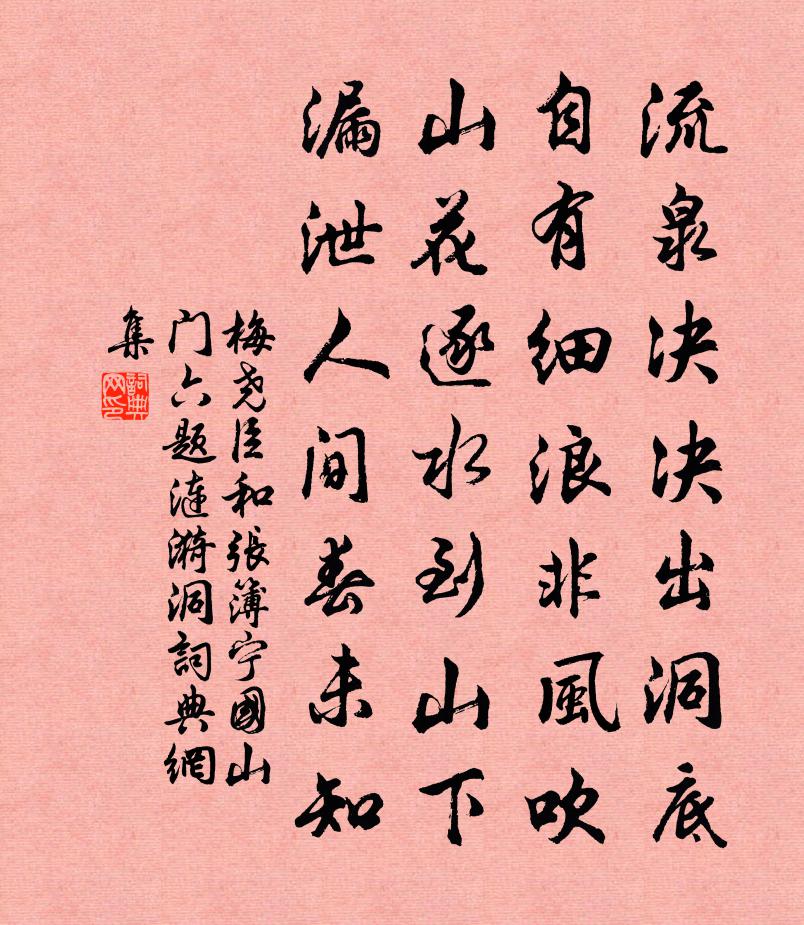 流泉决决出洞底
自有细浪非風吹
山花逐水到山下
漏泄人间春未知
梅尧臣和張簿宁國山
门六题涟漪洞詞典網
集
詞典网印